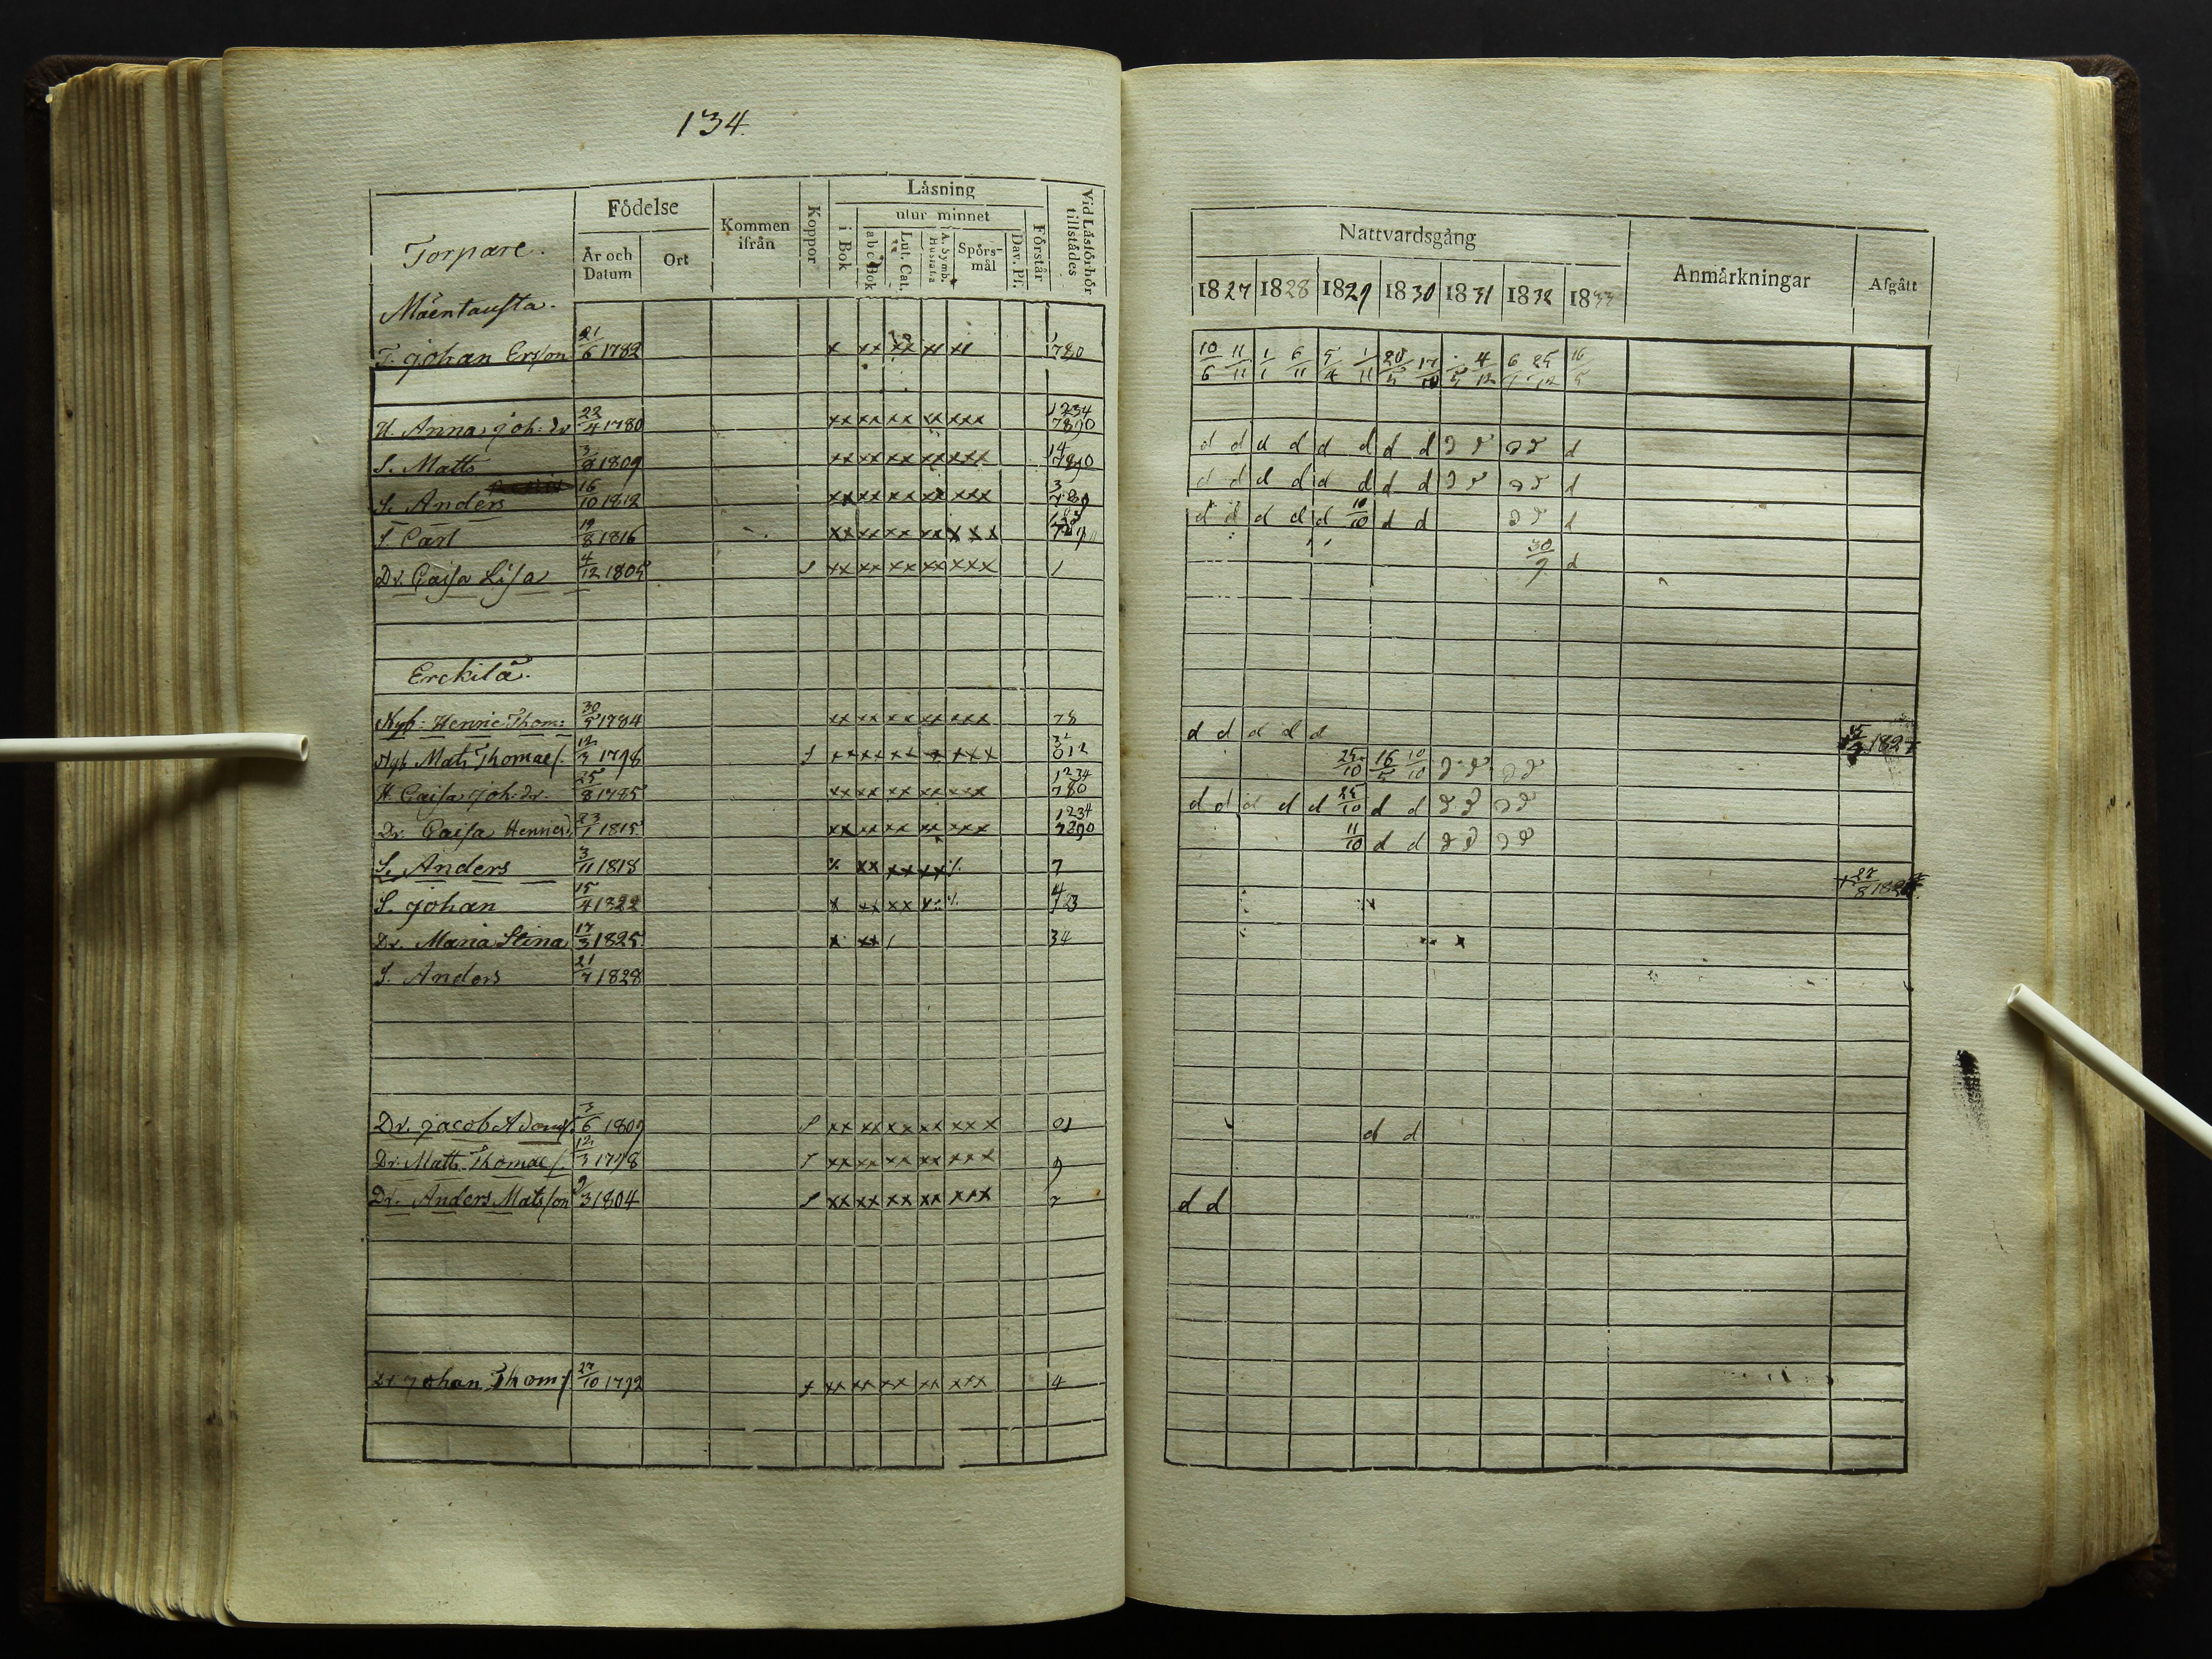 134.
Torpare.
Födelse
År och Datum
Ort
Kommen ifrån
Koppor
Läsning
i Bok
utur minnet
a b c Bok
Lut. Cat.
A. Symb. Hustafla
Spörs-mål
Dav. Ps.
Förstår
Vid Läsförhör tillstådes
Mäentausta.
T. Johan Ersson 21/6 1782 x xx xx xx xx 1780
H. Anna Joh: dr 22/4 1780 xx xx xx xx xxx 1234 7890
S. Matts 1809 xx xx xx xx xxx
S. Anders 16/10 1812 xx xx xx xx xxx 3 789
S. Carl 19/8 1816 xx xx xx xx xxx
Dr. Caisa Lisa 4/12 1805 S xx xx xx xx xxx 1
Erckilä.
Nyb: Henric Thom: 30/5 1784 xx xx xx xx xxx 78
Nyb Mats Thomaes. 12/3 1798 S xx xx xx x xxx 012
H. Caisa Joh. dr. 25/8 1785 xx xx xx xx xxx 1234 780
Dr. Caisa Henricsd. 23/1 1815 xx xx xx xx xxx 1234 7890
S. Anders 3/11 1818 xx xx xx 7
S. Johan 15/4 1822 x xx xx
Dr. Maria Stina 17/3 1825 x xx / 34
S. Anders 21/7 1828
Dr. Jacob Adams. 3/6 1809 S xx xx xx xx xxx 01
Dr. Matts Thomaes. 12/3 1798 S xx xx xx xx xxx 9
Dr. Anders Matsson 9/3 1804 S xx xx xx xx xxx 7
Dr. Johan Thoms 27/10 1792 S xx xx xx xx xxx 4
Nattvardsgång
Anmärkningar
Afgått
1827 1828 1829 1830 1831 1832 1833
10/6 11/11 1/1 6/11 5/4 1/11 20/5 17/10 4/12 25/12 16/5
d d d d d d d d d d d d d
d d d d d d d d d d d d d
d d d d d 10/10 d d d d d
30/9 d
d d d d d
25/10 16/5 10/10 d d d d
d d d d d 25/10 d d d d d d
11/10 d d d d d d
d d
d d